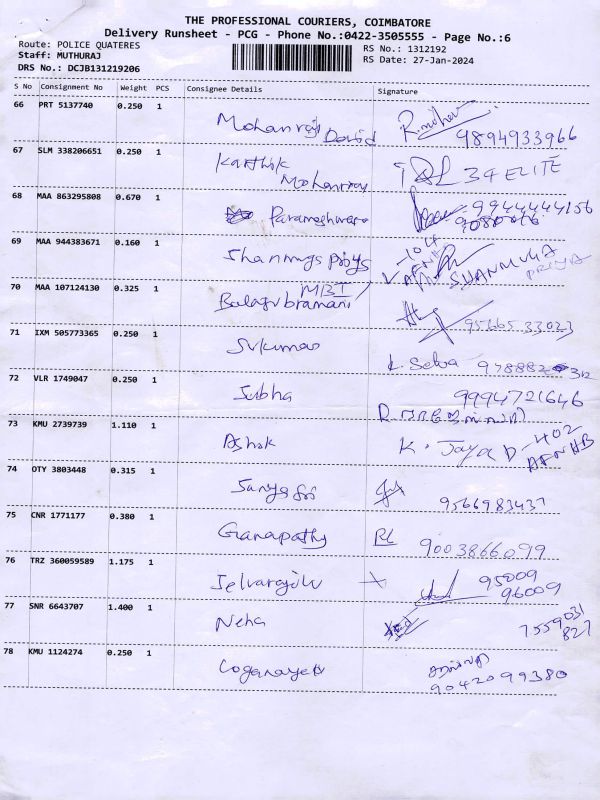 THE PROFESSIONAL COURIERS, COIMBATORE
Delivery Runsheet - PCG - Phone No.:0422-3505555 - Page No.:6
Route: POLICE QUATERES
RS No.: 1312192
Staff: MUTHURAJ
RS Date: 27-Jan-2024
DRS No.: DCJB131219206
S No Consignment No Weight PCS Consignee Details Signature
66 PRT 5137740 0.250 1
Mohanraj David 9894933966
67 SLM 338206651 0.250 1
Karthik 34 ELITE
68 MAA 863295808 0.670 1
Parameshwara 9944444156
69 MAA 944383671 0.160 1
SHANMUGA
PRIYA
70 MAA 107124130 0.325 1
MBT
Balasubramani 9566533023
71 IXM 505773365 0.250 1
Sukumar K. Selva
72 VLR 1749047 0.250 1
Subha 9994721646
73 KMU 2739739 1.110 1
Ashok K. Jaya D-402
AFNHB
74 OTY 3803448 0.315 1
9566983437
75 CNR 1771177 0.380 1
Ganapathy RL 9003866099
76 TRZ 360059589 1.175 1
Selvaraju 95009
96009
77 SNR 6643707 1.400 1
Neha 7559031
827
78 KMU 1124274 0.250 1
9042099380